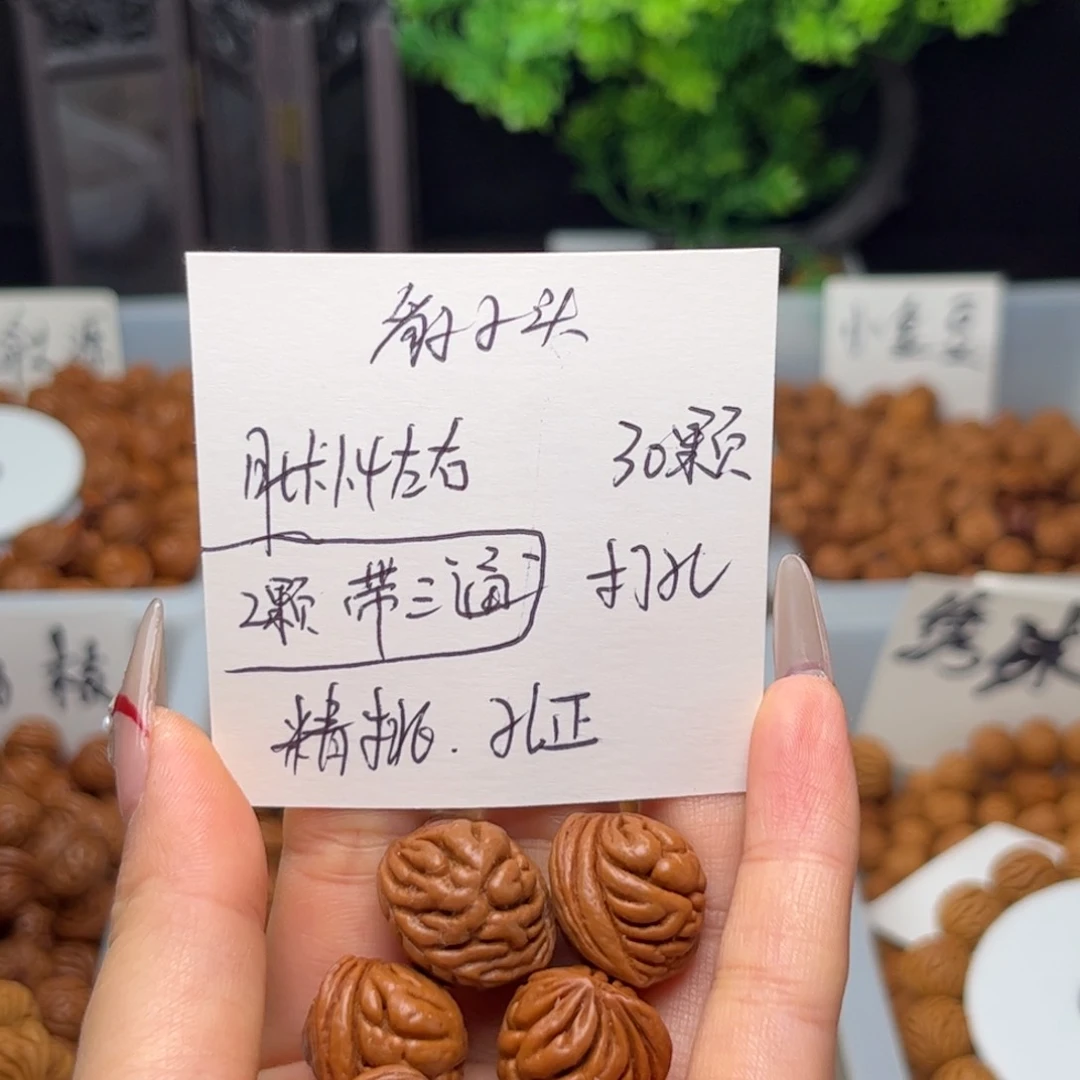 狮子头
肚卡14左右 30颗
2颗 带三通 打孔
精挑.孔正
小金豆